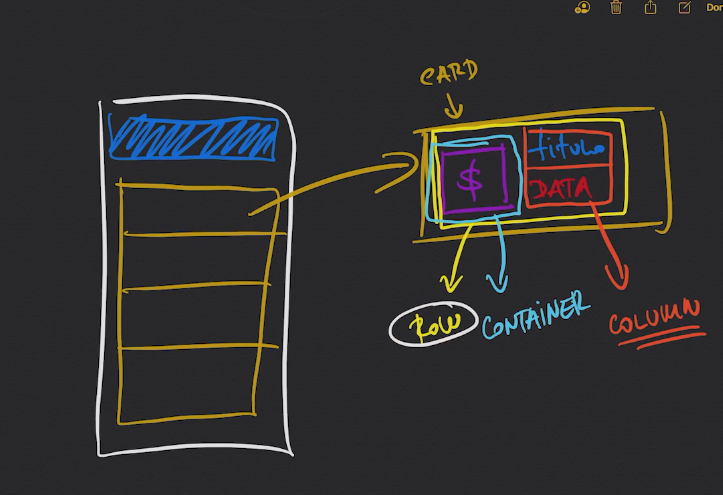 Don
CARD
$
título
DATA
ROW
CONTAINER
COLUMN